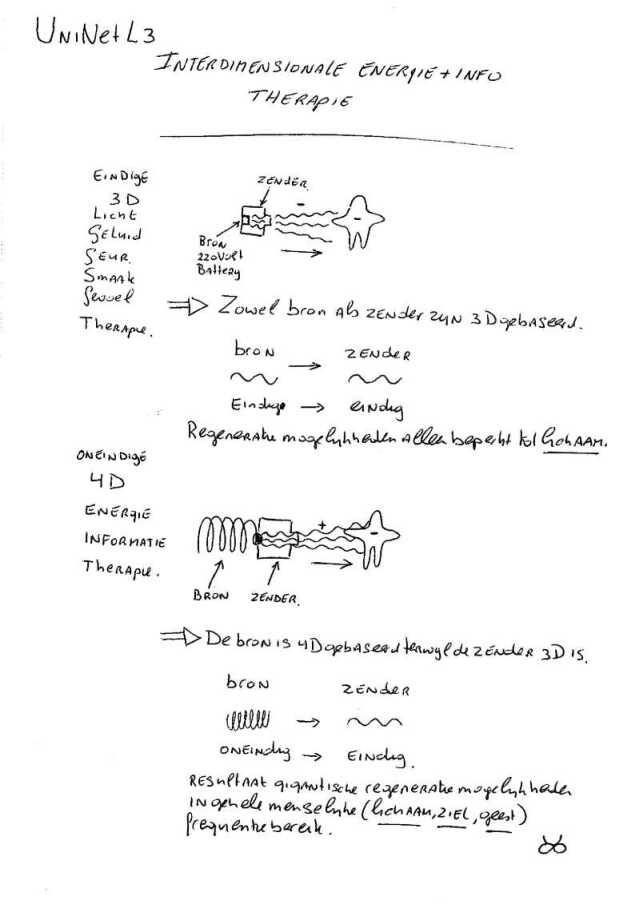 UniNetL3
INTERDIMENSIONALE ENERGIE + INFO
THERAPIE
EINDIGE
3D
Licht
GELUID
GEUR
SMAAK
Gevoel
THERAPIE.
ZENDER
-
BRON
220VOLT
Battery
-
⇒ Zowel bron als ZENDER ZYN 3D gebaseerd.
bron → ZENDER
Eindige → eindig
Regeneratie mogelykheden allen beperkt tot lichAAM.
ONEINDIGE
4D
ENERGIE
INFORMATIE
THERAPIE.
+
-
BRON
ZENDER.
⇒ De bron is 4D gebaseerd terwyl de ZENDER 3D is.
bron
ZENDER
→
ONEINDIG → EINDIG.
RESULTAAT gigantische regeneratie mogelykheden
IN gehele menselyke (lichAAM, ZIEL, geest)
frequentie bereik.